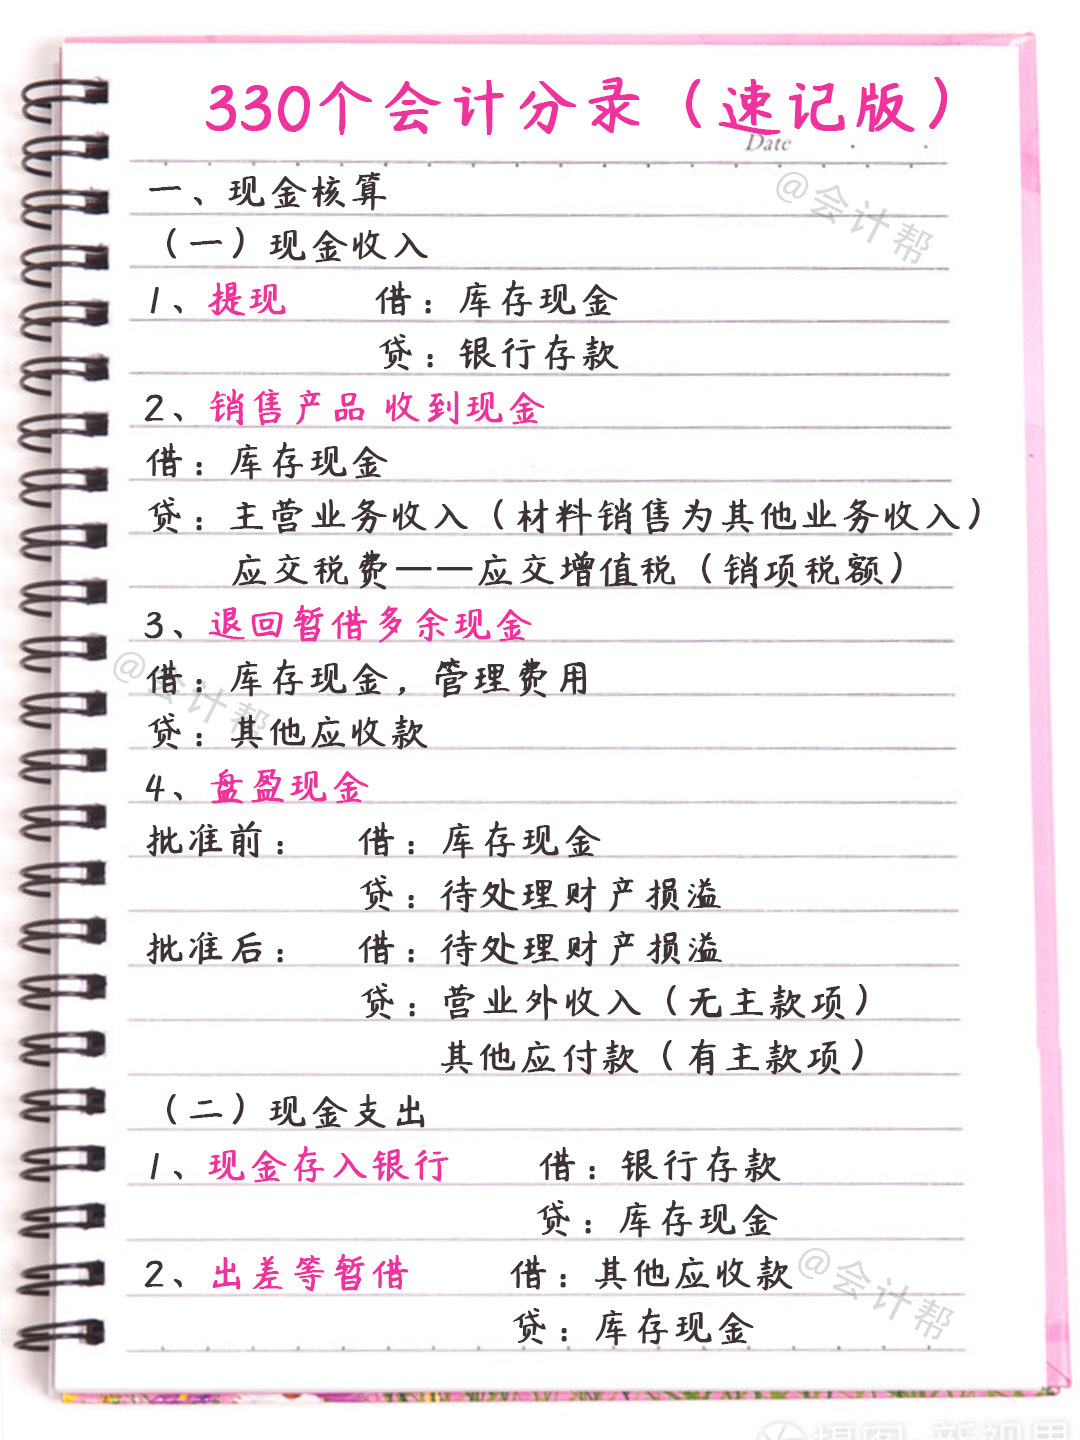 330个会计分录（速记版）
Date
一、现金核算
@会计帮
（一）现金收入
1、提现 借：库存现金
贷：银行存款
2、销售产品 收到现金
借：库存现金
贷：主营业务收入（材料销售为其他业务收入）
应交税费——应交增值税（销项税额）
3、退回暂借多余现金
借：库存现金，管理费用
@会计帮
贷：其他应收款
4、盘盈现金
批准前： 借：库存现金
贷：待处理财产损溢
批准后： 借：待处理财产损溢
贷：营业外收入（无主款项）
其他应付款（有主款项）
（二）现金支出
1、现金存入银行 借：银行存款
贷：库存现金
2、出差等暂借 借：其他应收款
@会计帮
贷：库存现金